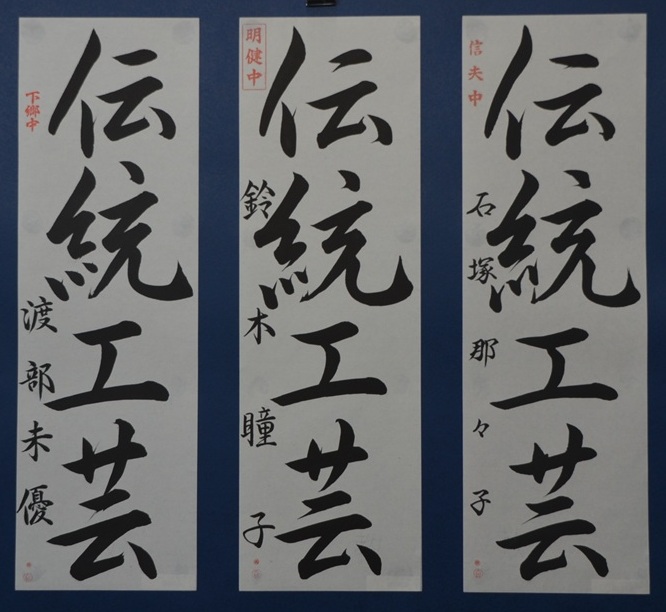 伝統工芸
信夫中
石塚那々子
伝統工芸
明健中
鈴木瞳子
伝統工芸
下郷中
渡部未優